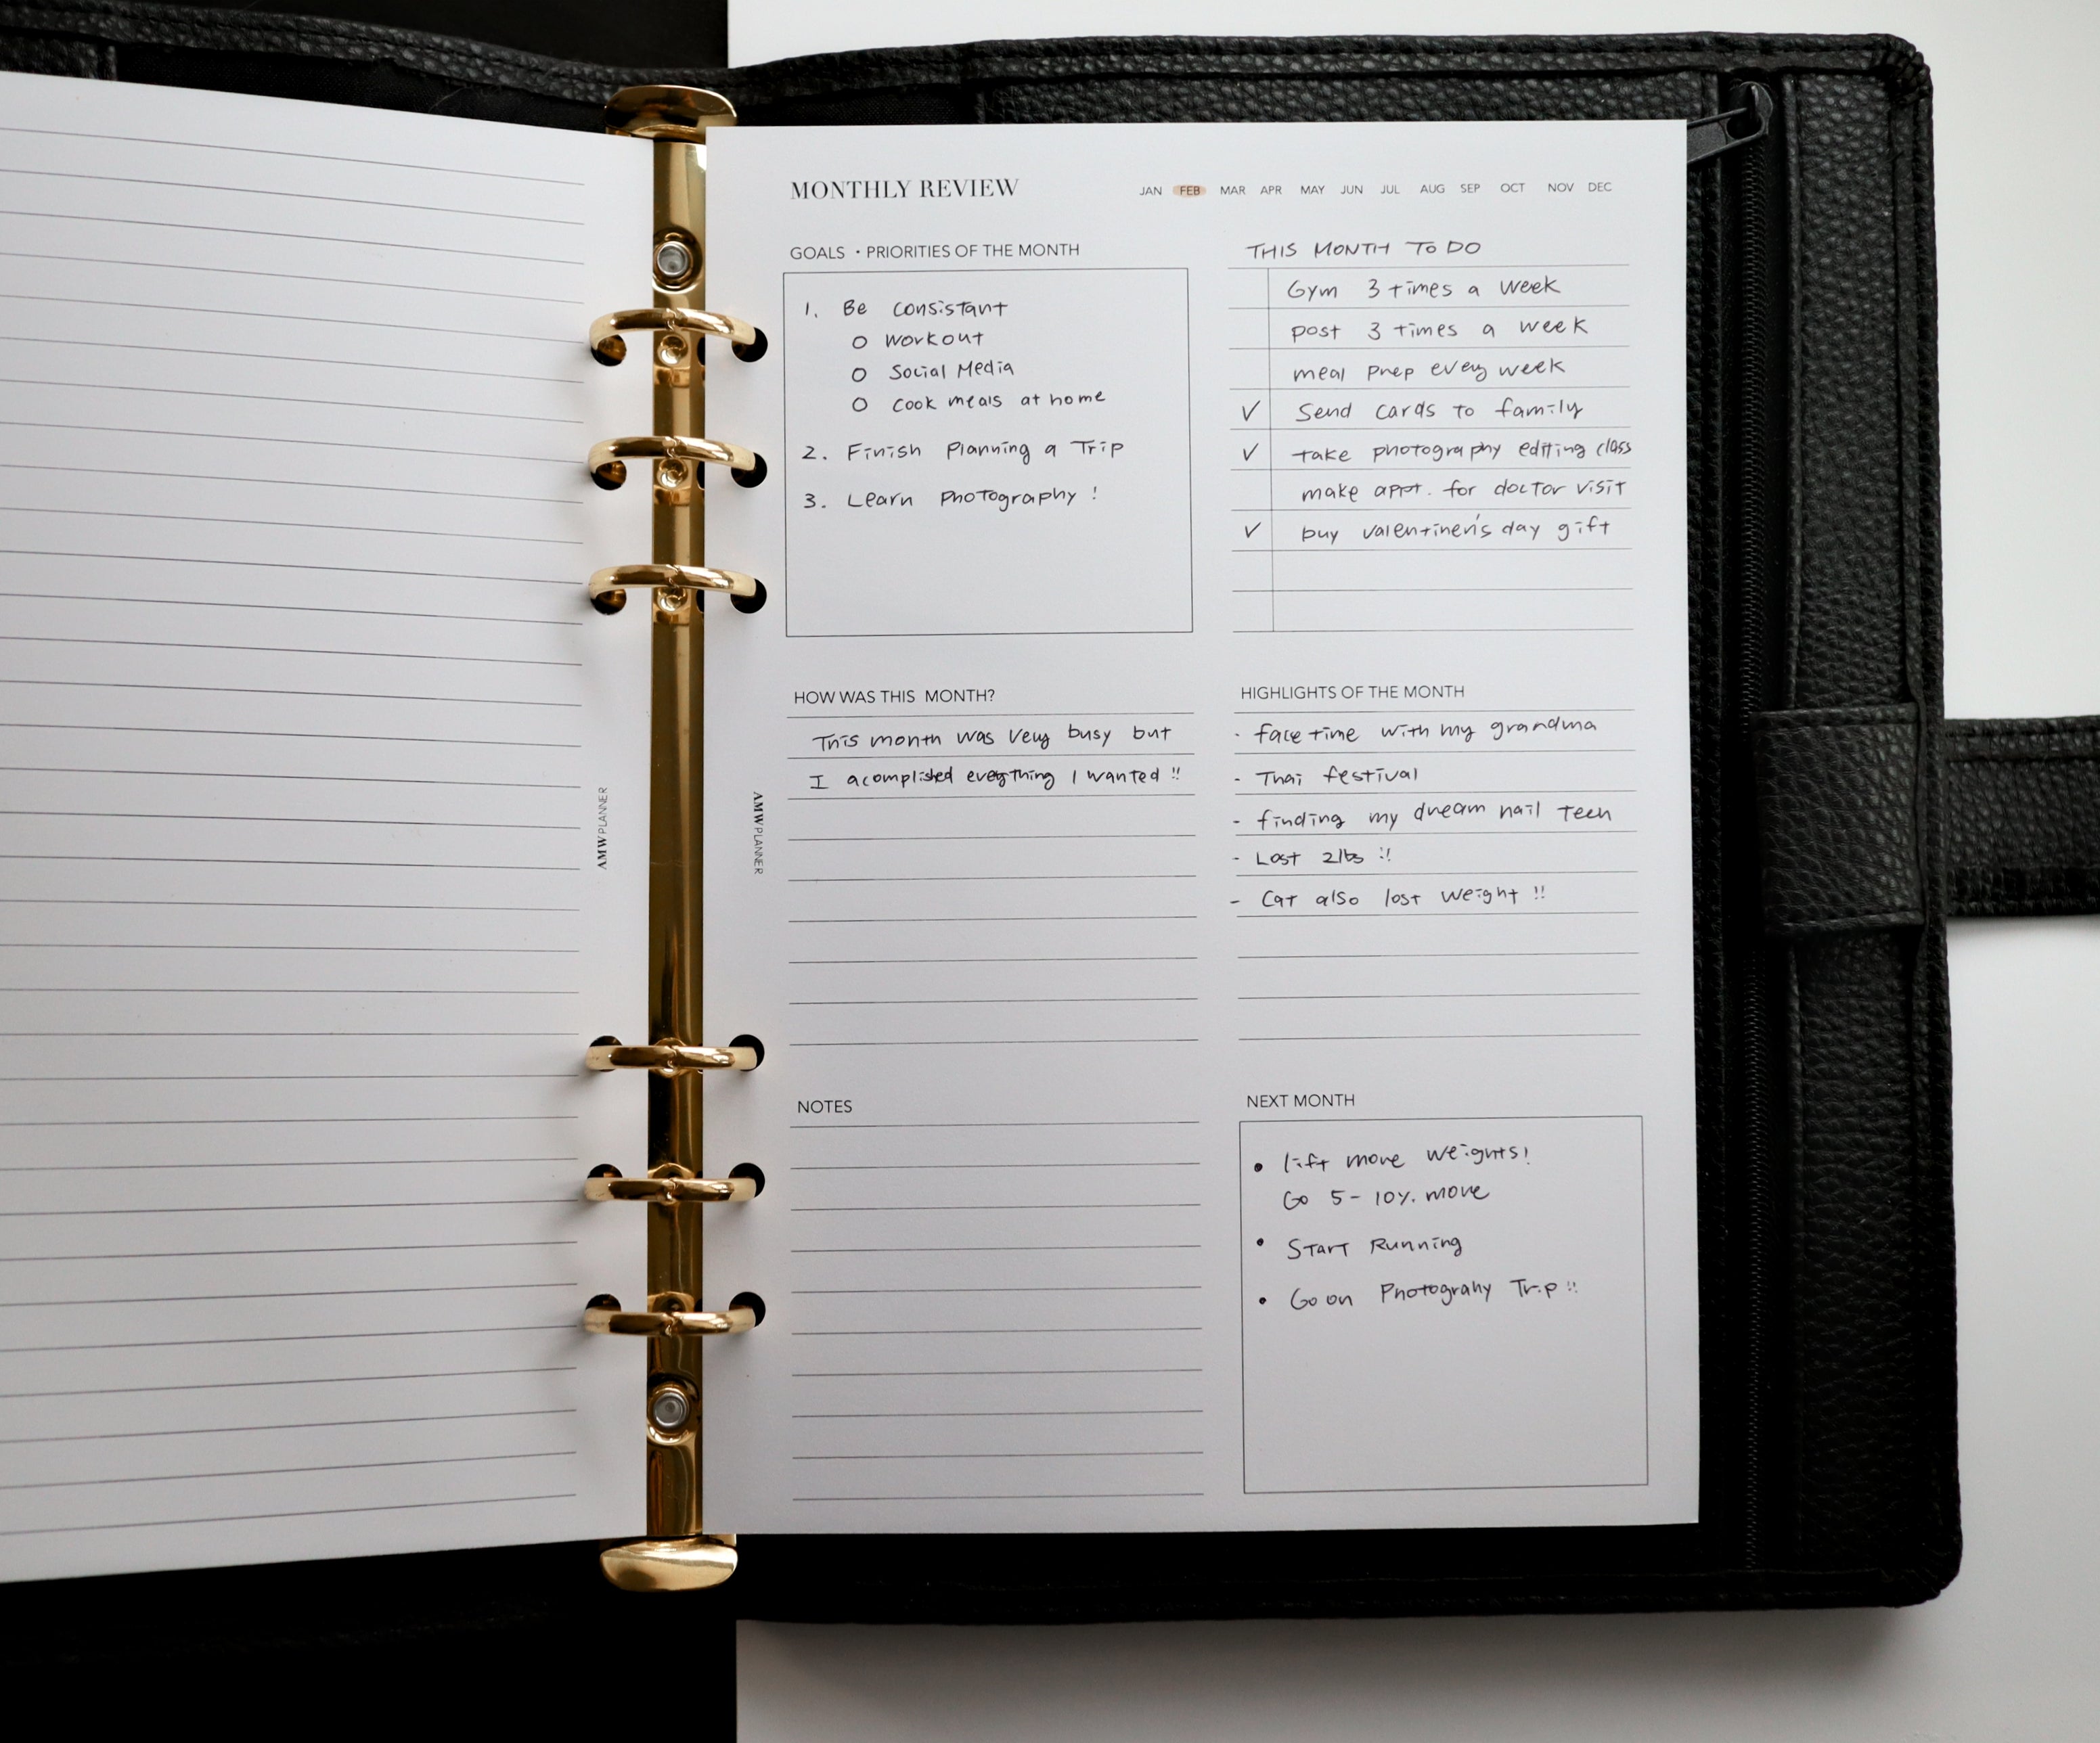 MONTHLY REVIEW
JAN FEB MAR APR MAY JUN JUL AUG SEP OCT NOV DEC
GOALS • PRIORITIES OF THE MONTH
1. Be consistant
o workout
o Social Media
o cook meals at home
2. Finish Planning a Trip
3. Learn Photography !
THIS MONTH TO DO
Gym 3 times a week
post 3 times a week
meal prep every week
✓ Send cards to family
✓ take photography editing class
make appt. for doctor visit
✓ buy valentinen's day gift
HOW WAS THIS MONTH?
This month was very busy but
I acomplished everything I wanted !!
HIGHLIGHTS OF THE MONTH
- facetime with my grandma
- Thai festival
- finding my dream nail teen
- Lost 2lbs !!
- Cat also lost weight !!
AMWPLANNER
AMWPLANNER
NOTES
NEXT MONTH
• lift more weights!
Go 5-10% more
• Start Running
• Go on Photograhy Trip !!